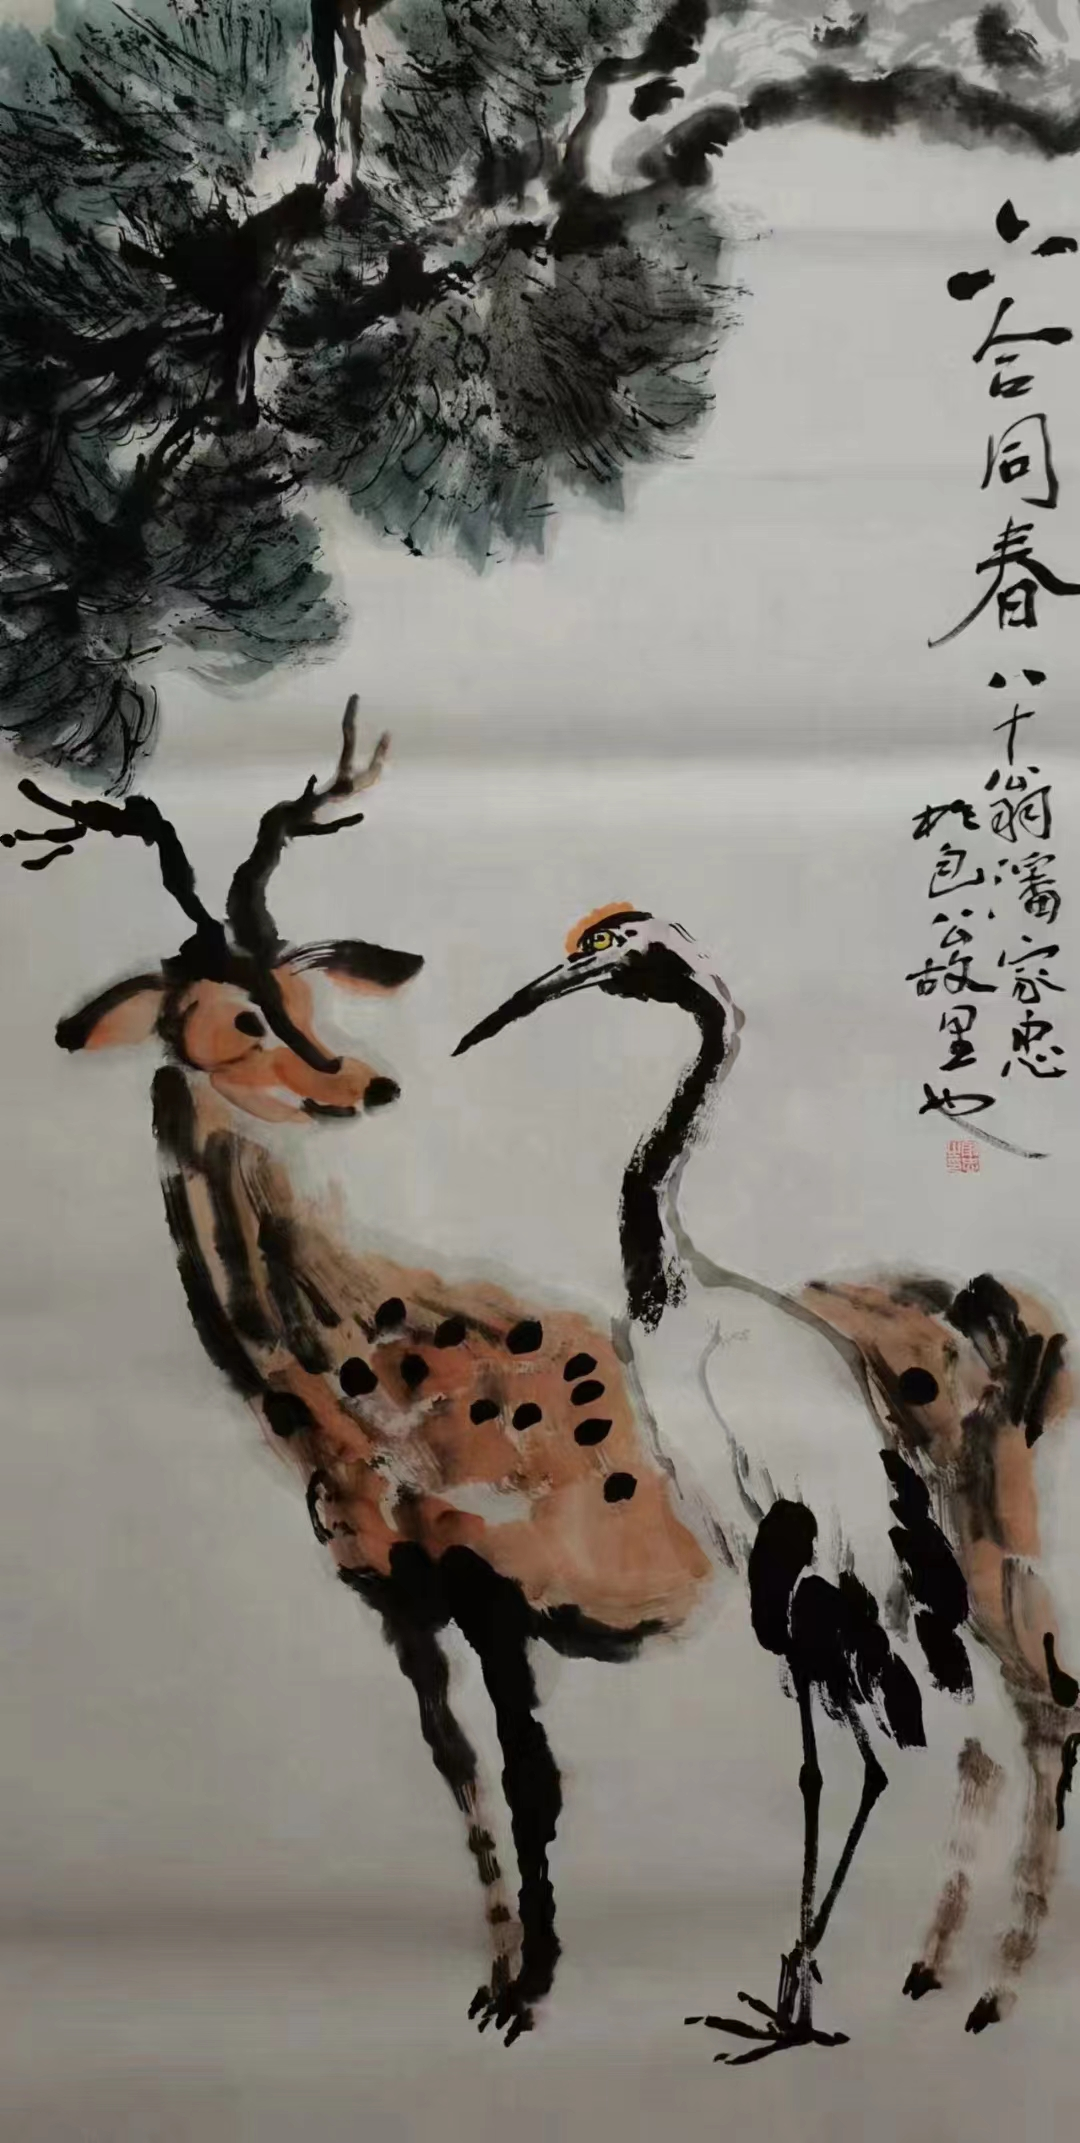 六合同春 八十翁潘家忠
於包公故里也